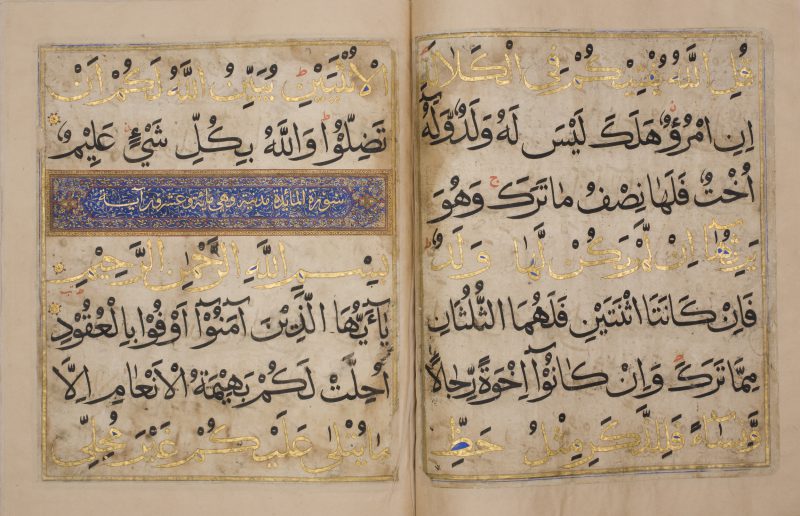 قُلِ اللّٰهُ يُفْتِيكُمْ فِي الْكَلَالَةِ
اِنِ امْرُؤٌ هَلَكَ لَيْسَ لَهُ وَلَدٌ وَلَهُ
اُخْتٌ فَلَهَا نِصْفُ مَا تَرَكَ وَهُوَ
يَرِثُهَا اِنْ لَمْ يَكُنْ لَهَا وَلَدٌ
فَاِنْ كَانَتَا اثْنَتَيْنِ فَلَهُمَا الثُّلُثَانِ
مِمَّا تَرَكَ وَاِنْ كَانُوٓا اِخْوَةً رِجَالًا
وَنِسَآءً فَلِلذَّكَرِ مِثْلُ حَظِّ
الْاُنْثَيَيْنِ يُبَيِّنُ اللّٰهُ لَكُمْ اَنْ
تَضِلُّوْا وَاللّٰهُ بِكُلِّ شَيْءٍ عَلِيمٌ
سورة المائدة مدنية وهى مائة وعشرون آية
بِسْمِ اللّٰهِ الرَّحْمٰنِ الرَّحِيمِ
يَآءَيُّهَا الَّذِينَ آمَنُوٓا اَوْفُوْا بِالْعُقُودِ
اُحِلَّتْ لَكُمْ بَهِيمَةُ الْاَنْعَامِ اِلَّا
مَا يُتْلٰى عَلَيْكُمْ غَيْرَ مُحِلِّي